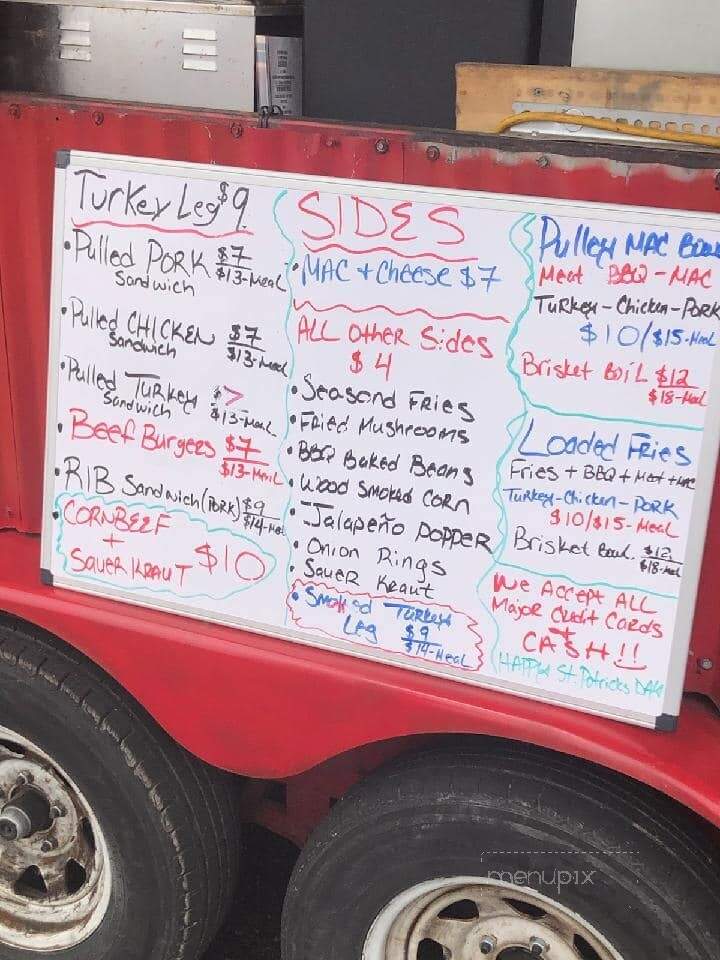 Turkey Leg $9
• Pulled PORK $7
Sandwich $13-Meal
• Pulled CHICKEN $7
Sandwich $13-Meal
• Pulled Turkey $7
Sandwich $13-Meal
• Beef Burgers $7
$13-Meal
• RIB Sandwich (Pork) $9
$14-Meal
• CORNBEEF
+
SAUER KRAUT $10
SIDES
• MAC + Cheese $7
ALL Other Sides
$4
• Seasond FRies
• FRied Mushrooms
• BBQ Baked Beans
• Wood Smoked CORN
• Jalapeño POPPER
• Onion Rings
• Sauer Kraut
• Smoked Turkey
Leg $9
$14-Meal
MAC
Meat BBQ - MAC
Turkey - Chicken - PORK
$10/$15-Meal
Brisket $12
$18-Meal
Loaded Fries
Fries + BBQ + Meat +
Turkey - Chicken - PORK
$10/$15-Meal
Brisket $12
$18-Meal
We Accept ALL
Major Credit Cards
+
CASH!!
HAPPY St. Patricks DAY
menupix